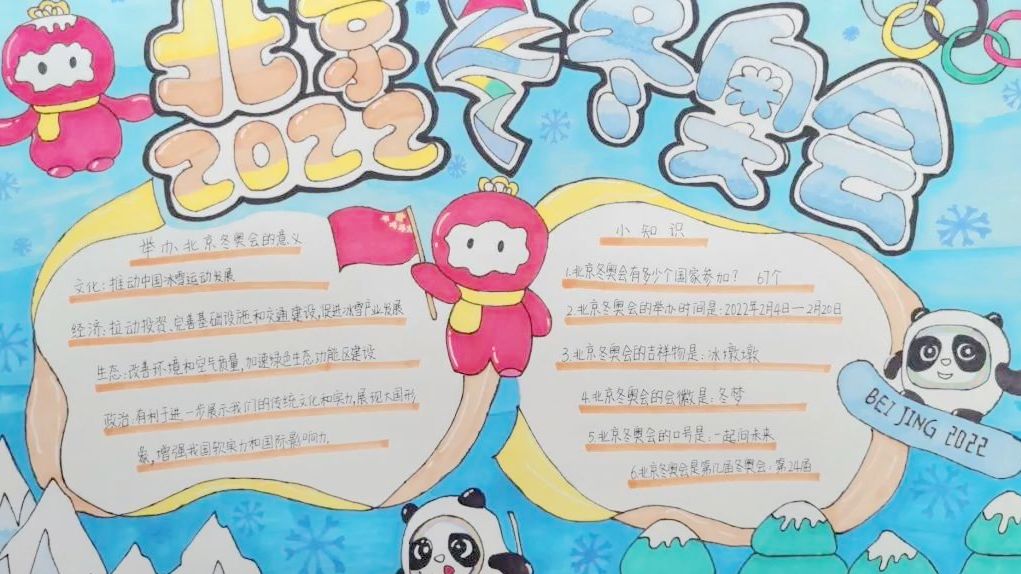 北京冬奥会
2022
举办北京冬奥会的意义
文化:推动中国冰雪运动发展
经济:拉动投资、完善基础设施和交通建设,促进冰雪产业发展
生态:改善环境和空气质量,加速绿色生态功能区建设
政治:有利于进一步展示我们的传统文化和实力,展现大国形
象,增强我国软实力和国际影响力.
小知识
1.北京冬奥会有多少个国家参加? 67个
2.北京冬奥会的举办时间是:2022年2月4日—2月20日
3.北京冬奥会的吉祥物是:冰墩墩
4.北京冬奥会的会徽是:冬梦
5.北京冬奥会的口号是:一起向未来
6.北京冬奥会是第几届冬奥会:第24届
BEI JING 2022